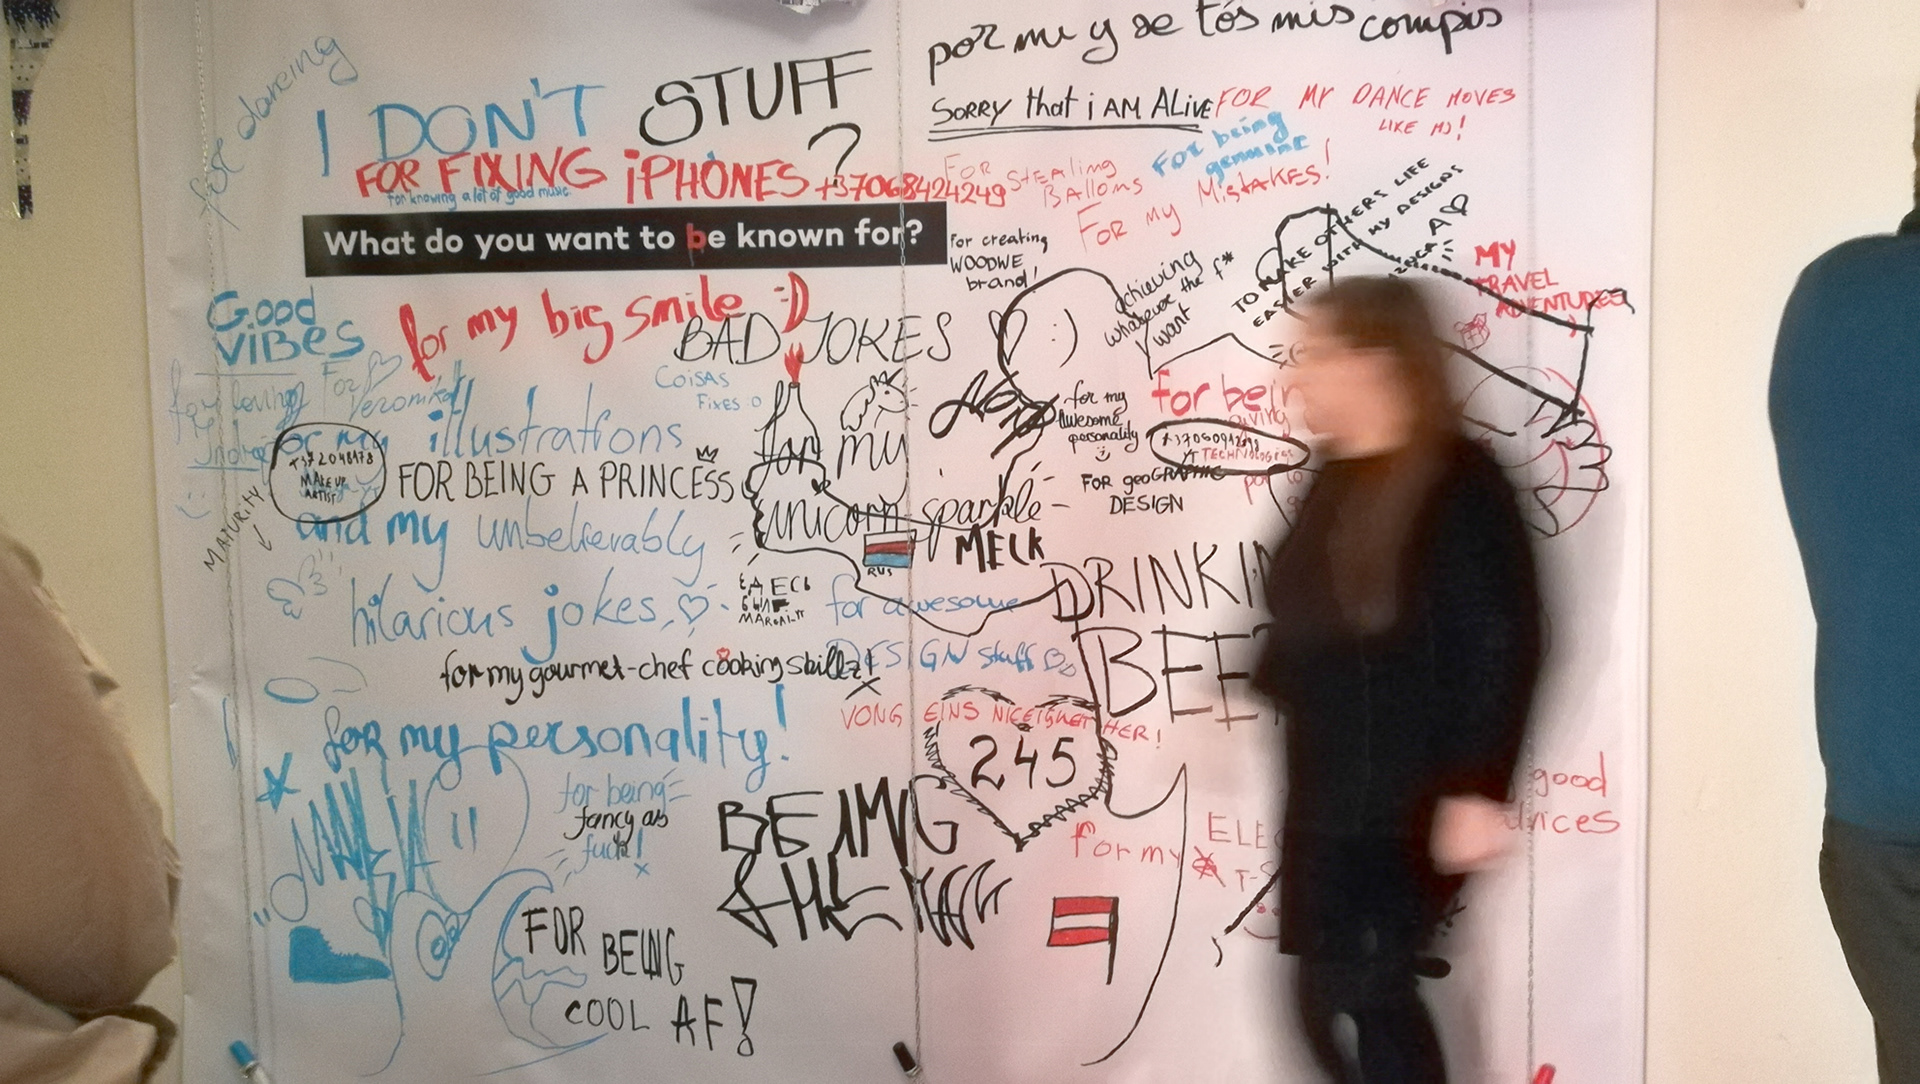 por mi y se tós mis compis
for dancing
I DON'T STUFF
?
SORRY that i AM ALIVE
FOR MY DANCE MOVES
LIKE MJ!
FOR FIXING iPHONES +37068424249
for knowing a lot of good music
FOR STEALING
BALLONS
for being
genuine
FOR MY MISTAKES!
What do you want to be known for?
For creating
WOODWE
brand!
achieving
whatever the f*
I want
TO MAKE OTHERS LIFE
EASIER WITH MY DESIGNS
MY
TRAVEL
ADVENTURES
Good
ViBes
for my big smile :D
BAD JOKES
:)
for loving
Indra
For
Veronika
COiSAS
Fixes :o
for my
illustrations
MAKE UP
ARTIST
FOR BEING A PRINCESS
and my unbelievably
hilarious jokes
MATURITY
for my
unicorn sparkle
RUS
MELK
for my
awesome
personality
for bein
giving
TECHNOLOGIES
FOR geoGRAPHIC
DESIGN
DRINKIN
BEE
for awesome
DESIGN stuff
for my gourmet-chef cooking skillz!
VONG EINS NICEIGKEIT HER!
245
for my personality!
for being
fancy as
fuck!
BEING
FOR BEING
COOL AF!
for my
ELE
T-S
good